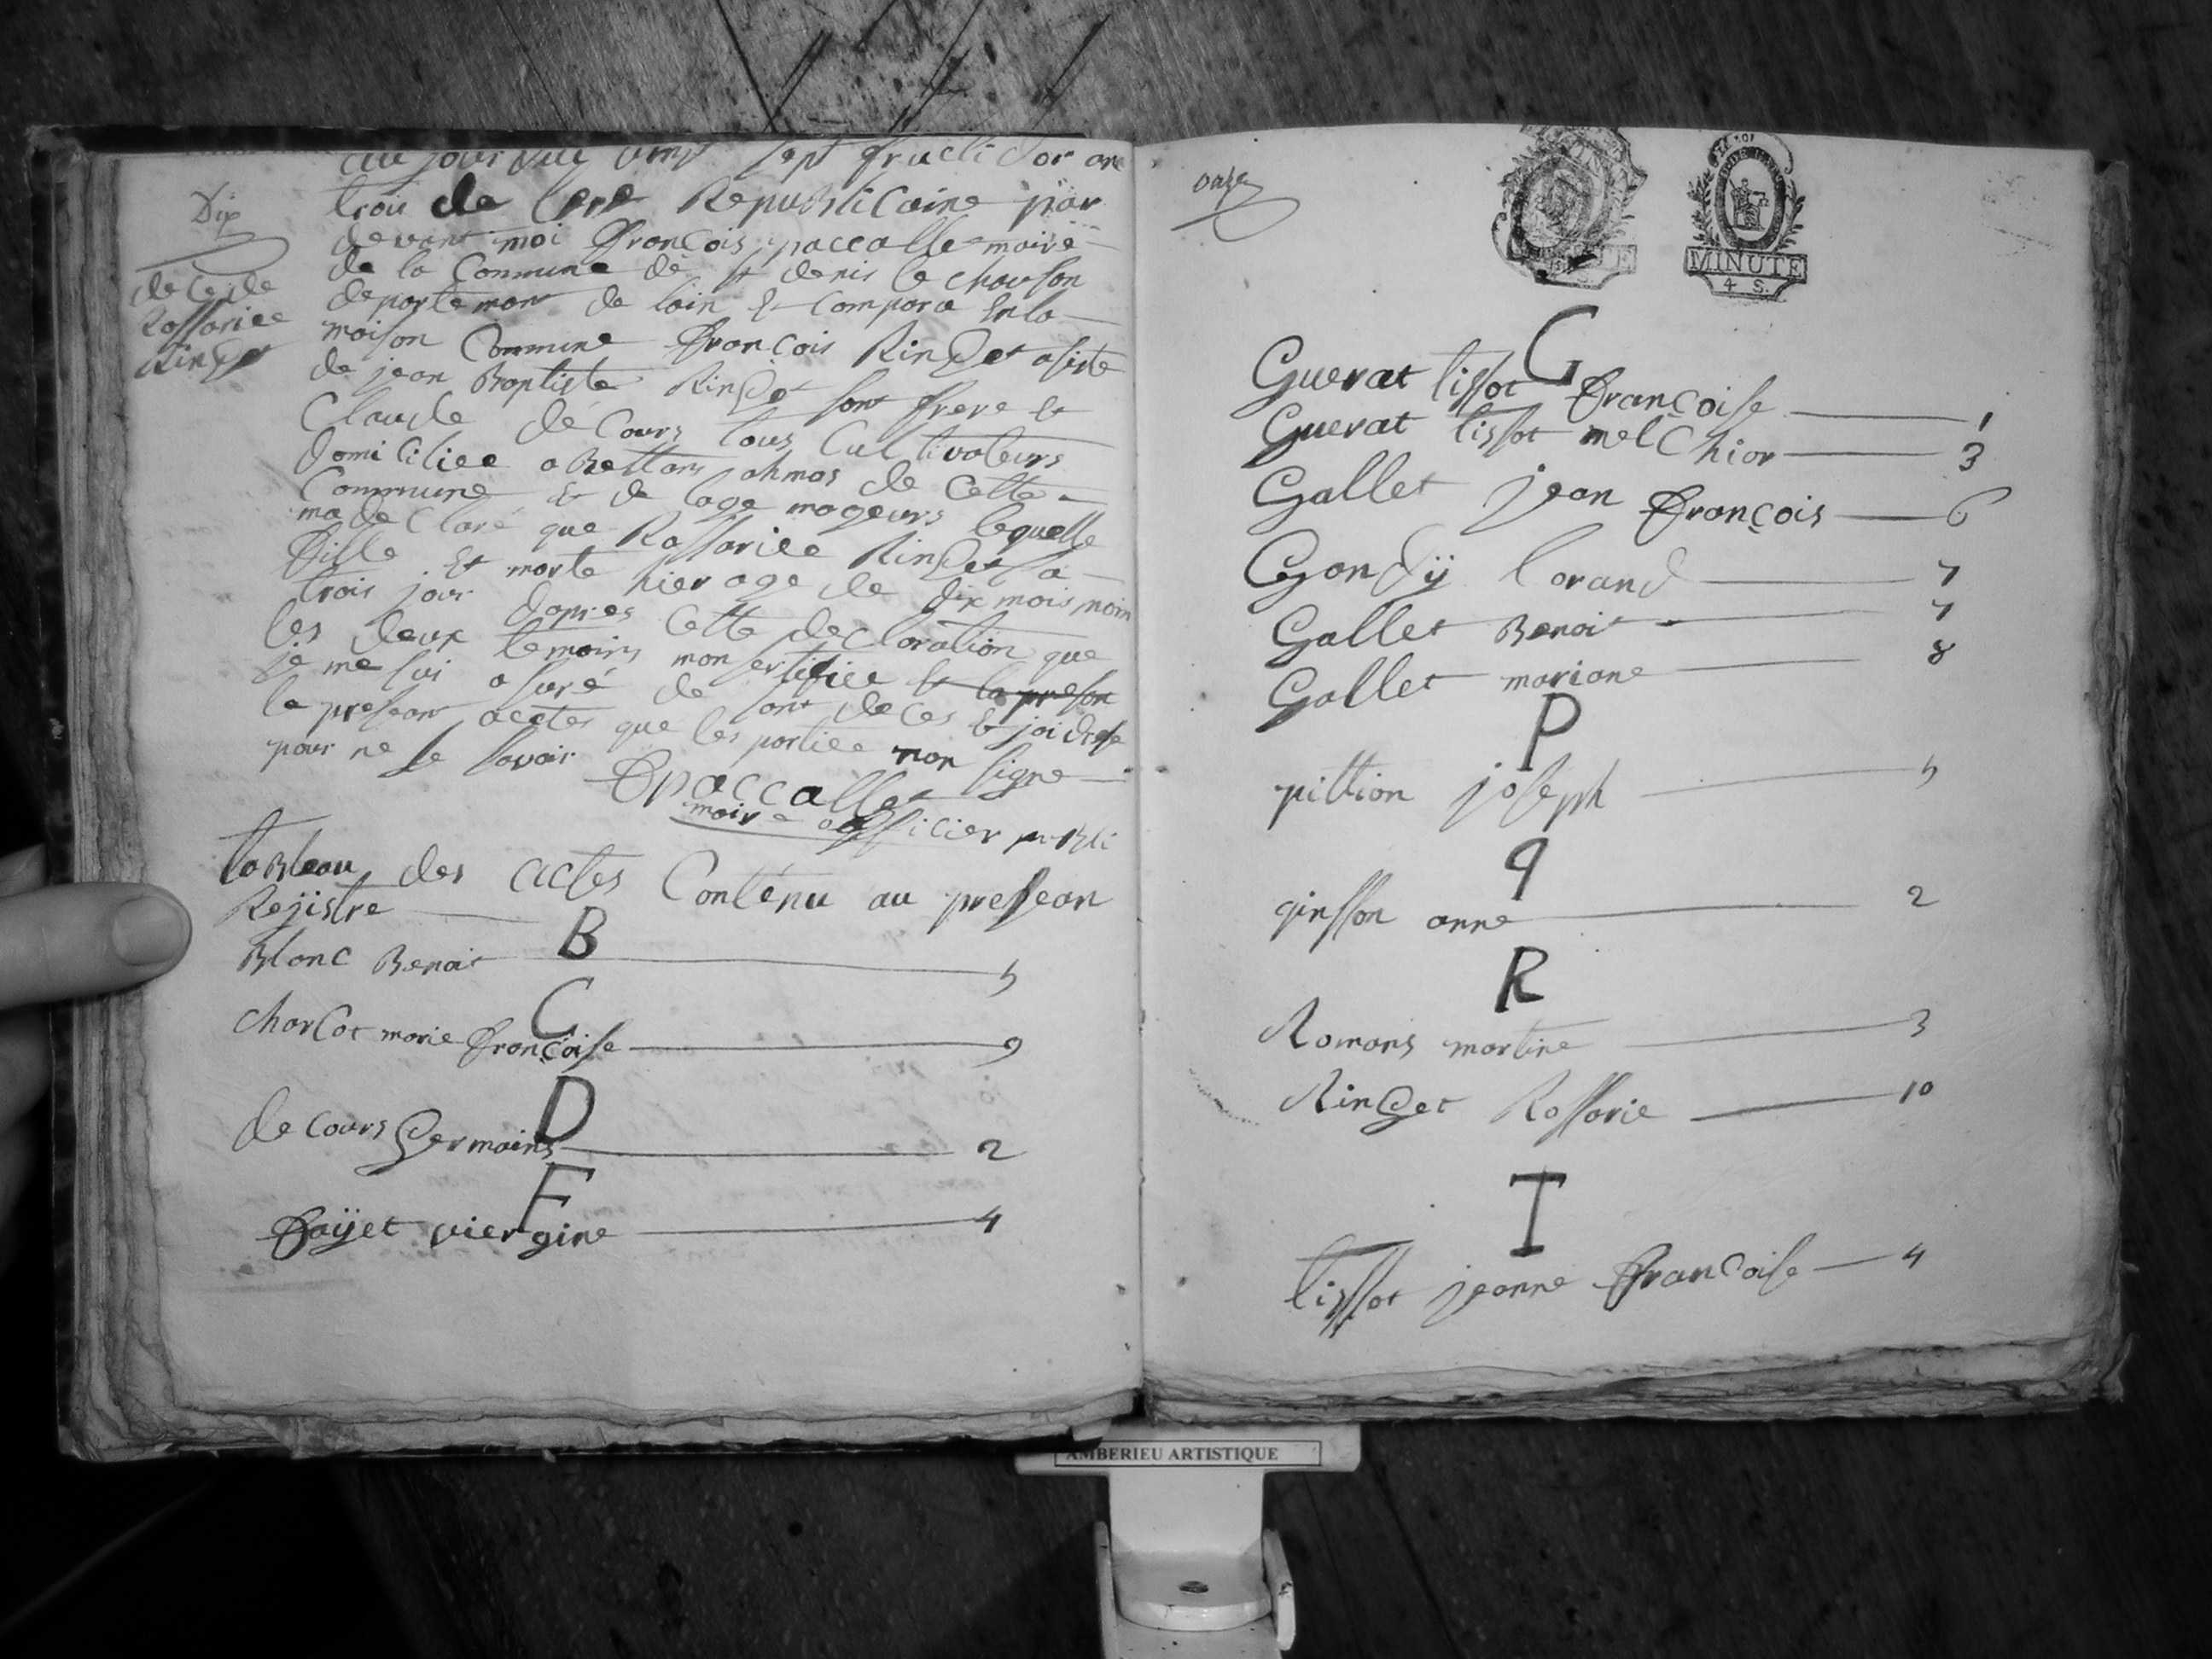 Dix
decé de
Rossariee
Ringet
au jourdui vint sept fructidor an
trou de lere Republicaine par
devant moi François paccalle maire
de la Commune de st denis le chauson
departemant de lain Et Compara En la
maison Commune François Ringet asisté
de jean Baptiste Ringet sont frere Et
Claude de Cours tous Cultivateurs
domiciliee a de Cette
Commune Et de lage mageurs lequelle
ma de Claré que Rossariee Ringet sa
fille Et morte hier age de dix mois moin
trois jour dapres Cette de Claration que
les deux temoins mon sertifiee Et la presan
je me sui asuré de sont deces Et jai drese
la presant acctes que les partiee non signe
pour ne le savoir
F paccalle
maire officier publi
taBleau des actes Contenu au presean
Rejistre
B
Blanc Benait 5
C
charcot marie françoise 9
D
de cours germains 2
F
faÿet viergine 4
onze
MINUTE
4 S.
G
Guerat tissot françoise 1
Guerat tissot melChior 3
Gallet jean françois 6
Gondÿ lorand 7
Gallet Benait 7
Gallet mariane 8
P
pittion joseph 5
q
qinsson anne 2
R
Romans martine 3
Ringet Rossarie 10
T
tissot jeanne françoise 4
AMBERIEU ARTISTIQUE